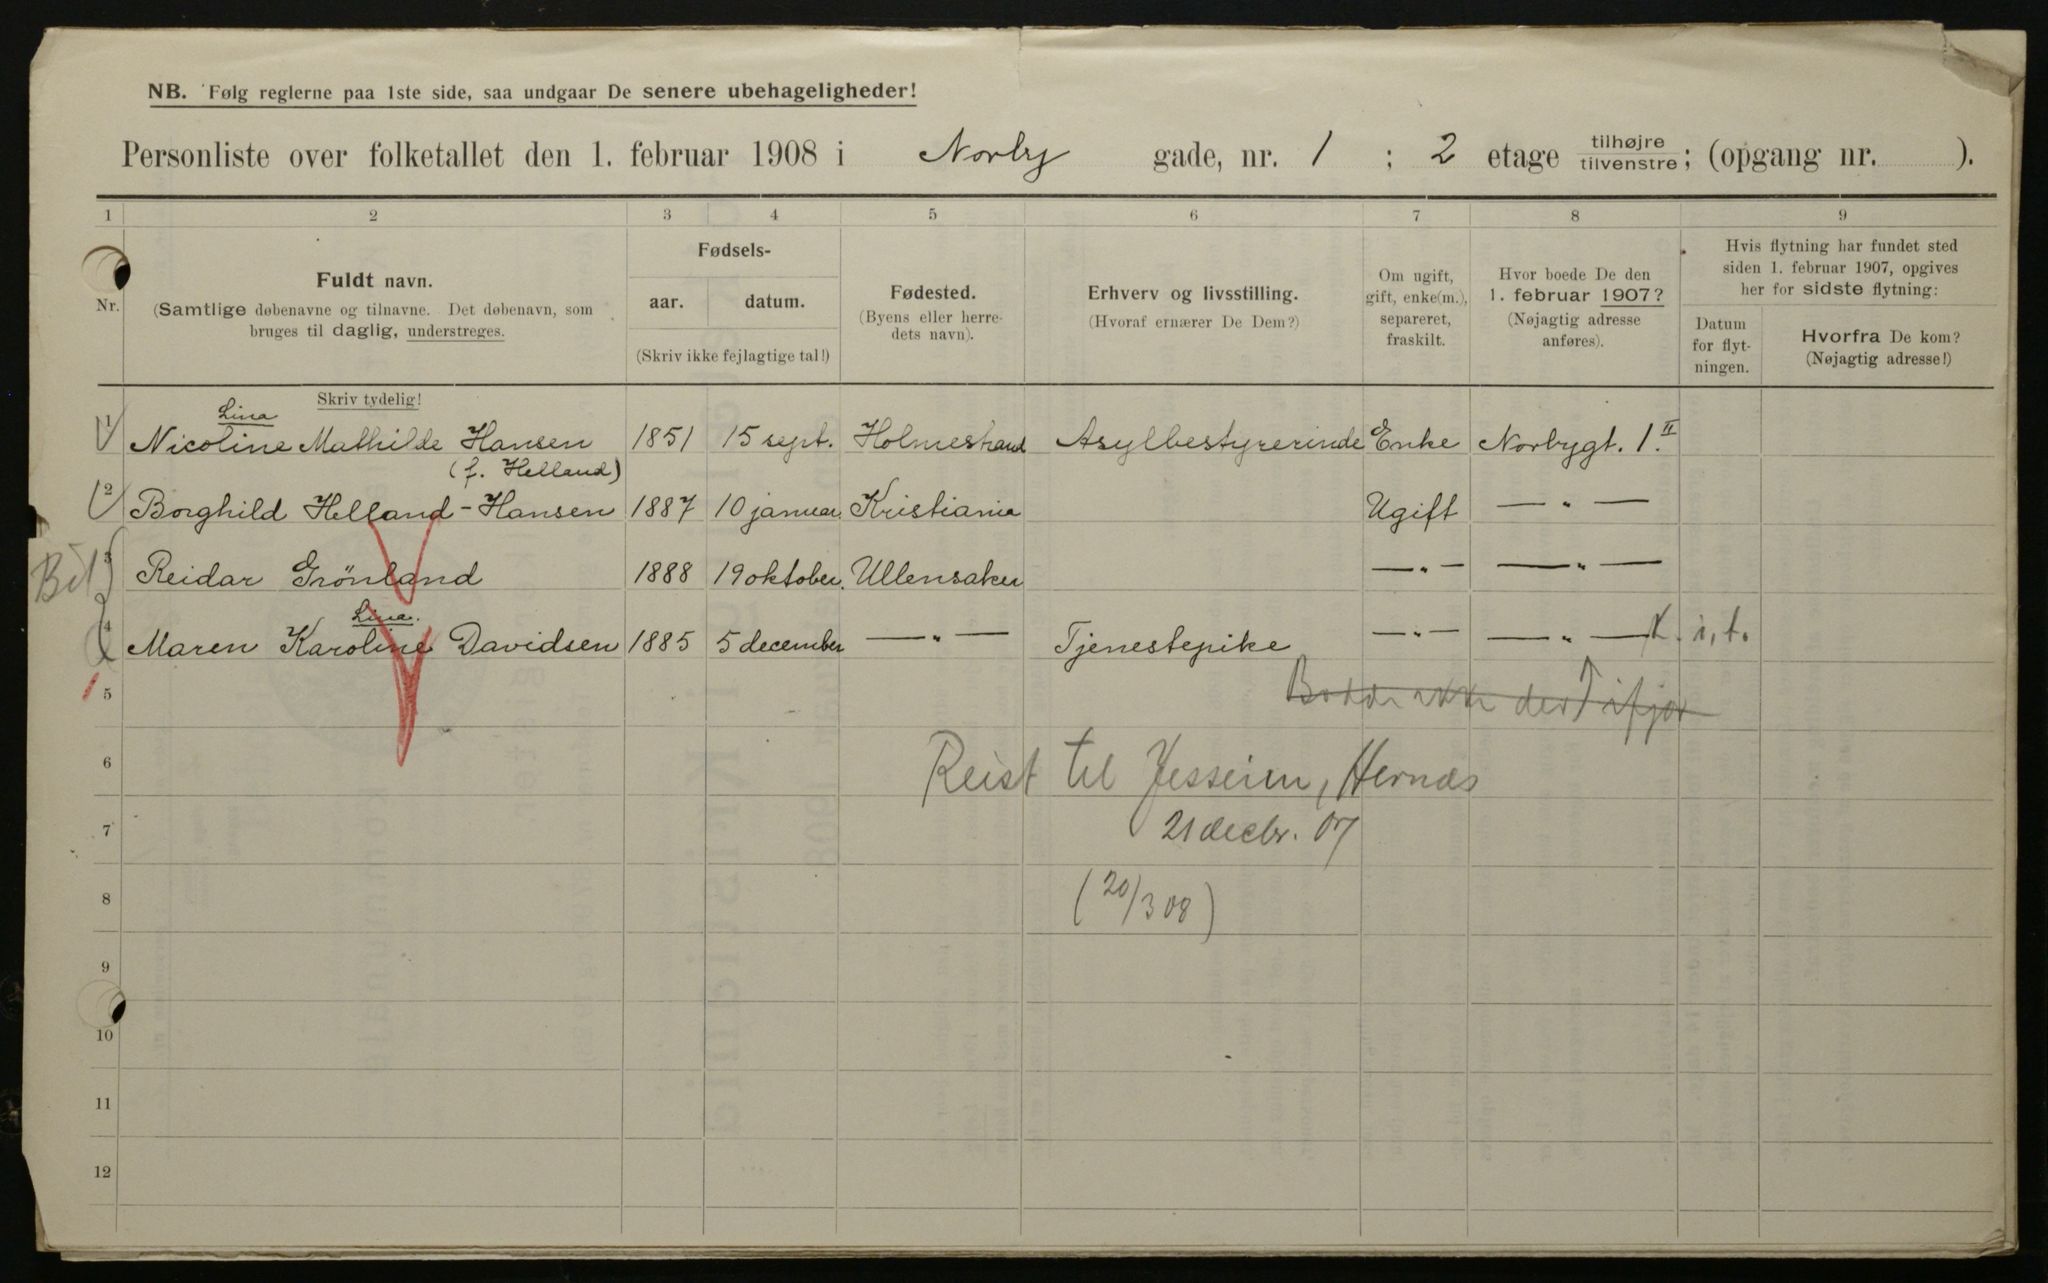 NB. Følg reglerne paa 1ste side, saa undgaar De senere ubehageligheder!
Personliste over folketallet den 1. februar 1908 i Norby gade, nr. 1 ; 2 etage tilhøjre tilvenstre; (opgang nr. ).
1 2 3 4 5 6 7 8 9
Nr.
Fuldt navn.
(Samtlige døbenavne og tilnavne. Det døbenavn, som
bruges til daglig, understreges.
Skriv tydelig!
Fødsels-
aar. datum.
(Skriv ikke fejlagtige tal!)
Fødested.
(Byens eller herre-
dets navn).
Erhverv og livsstilling.
(Hvoraf ernærer De Dem?)
Om ugift,
gift, enke(m.),
separeret,
fraskilt.
Hvor boede De den
1. februar 1907?
(Nøjagtig adresse
anføres).
Hvis flytning har fundet sted
siden 1. februar 1907, opgives
her for sidste flytning:
Datum
for flyt-
ningen.
Hvorfra De kom?
(Nøjagtig adresse!)
Lina
1 Nicoline Mathilde Hansen 1851 15 sept. Holmestrand Asylbestyrerinde Enke Norbygt. 1. II
(f. Helland)
2 Borghild Helland-Hansen 1887 10 januar. Kristiania Ugift — „ —
3 Reidar Grönland 1888 19 oktober. Ullensaker — „ — — „ —
Lina.
4 Maren Karoline Davidsen 1885 5 december — „ — Tjenestepike — „ — — „ — i, t.
5
6 Reist til Jesseim, Hernæs
7 21 decbr. 07
8 (20/3 08)
9
10
11
12